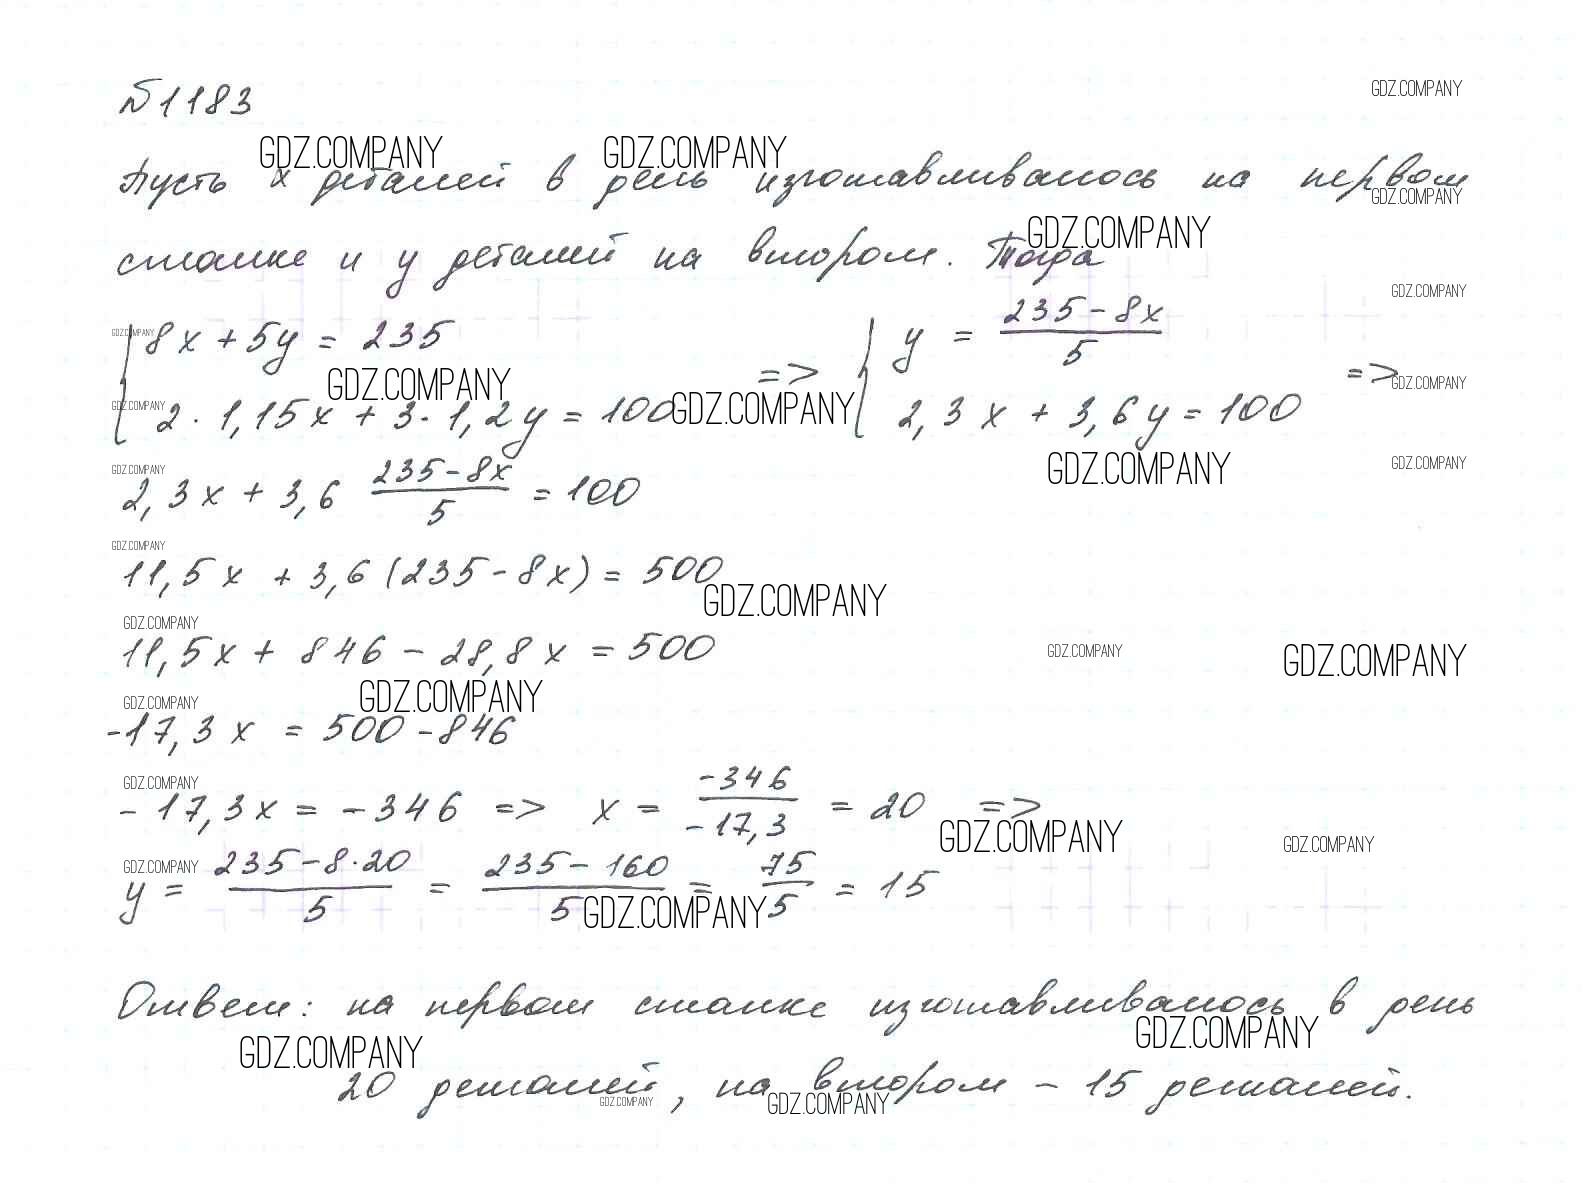 №1183
GDZ.COMPANY
GDZ.COMPANY GDZ.COMPANY
Пусть x деталей в день изготавливалось на первом
GDZ.COMPANY
GDZ.COMPANY
станке и y деталей на втором. Тогда
GDZ.COMPANY
GDZ.COMPANY
8x + 5y = 235 => y = (235 - 8x)/5 =>
GDZ.COMPANY GDZ.COMPANY
GDZ.COMPANY GDZ.COMPANY
2 · 1,15x + 3 · 1,2y = 100 2,3x + 3,6y = 100
GDZ.COMPANY GDZ.COMPANY GDZ.COMPANY
2,3x + 3,6 (235 - 8x)/5 = 100
GDZ.COMPANY
11,5x + 3,6(235 - 8x) = 500
GDZ.COMPANY
GDZ.COMPANY
11,5x + 846 - 28,8x = 500
GDZ.COMPANY GDZ.COMPANY
GDZ.COMPANY GDZ.COMPANY
-17,3x = 500 - 846
GDZ.COMPANY
-17,3x = -346 => x = -346/-17,3 = 20 =>
GDZ.COMPANY GDZ.COMPANY
GDZ.COMPANY
y = (235 - 8·20)/5 = (235 - 160)/5 = 75/5 = 15
GDZ.COMPANY
Ответ: на первом станке изготавливалось в день
GDZ.COMPANY GDZ.COMPANY
20 деталей, на втором - 15 деталей.
GDZ.COMPANY GDZ.COMPANY